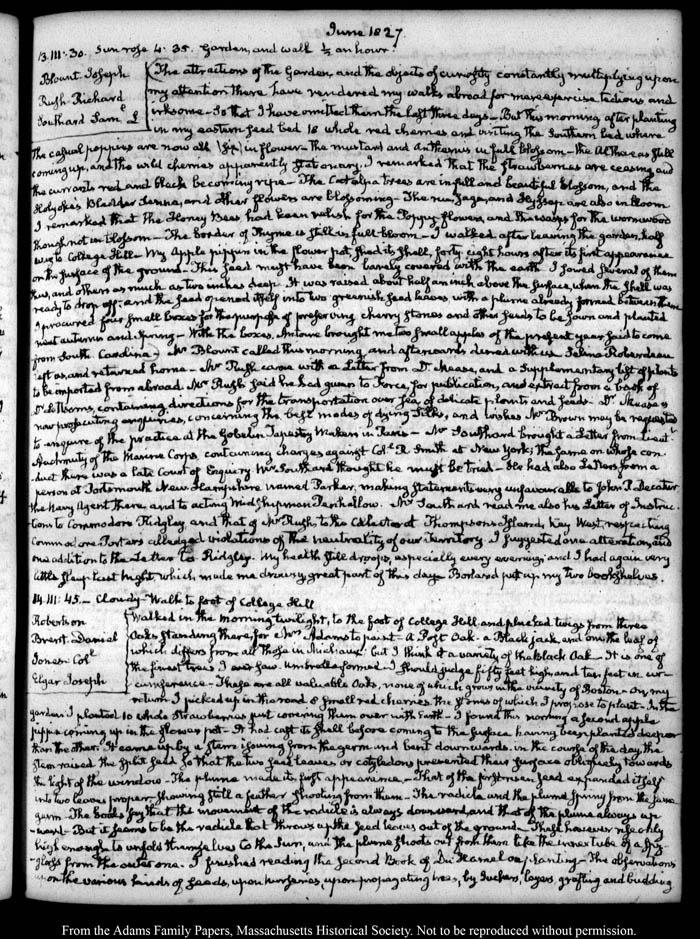 June 1827.
13. III:30. Sun rose 4.35. Garden, and walk ½ an hour.
Blount Joseph
Rush Richard
Southard Sam.l L
The attractions of the Garden, and the objects of curiosity constantly multiplying upon
my attention there have rendered my walks abroad for mere exercise tedious and
irksome. So that I have omitted them the last three days. But this morning, after planting
in my eastern seed bed 18 whole red cherries and visiting the Southern bed where
the casual poppies are now all in flower. the mustard and Anthemis in full blossom. the Althaeas still
coming up, and the wild cherries apparently stationary. I remarked that the strawberries are ceasing and
the currants red and black becoming ripe. The Catalpa trees are in full and beautiful blossom, and the
Bladder Senna, and other flowers are blossoming. The rue, sage, and Hyssop are also in bloom
I remarked that the Honey Bees had keen relish for the Poppy flowers, and the wasps for the wormwood
though not in blossom. The border of Thyme is still in full bloom. I walked after leaving the garden, half
way to College Hill. My Apple pippin in the flower pot, shed its shell, forty eight hours after its first appearance
on the surface of the ground. This seed must have been barely covered with the earth. I sowed several of them
thus, and others as much as two inches deep. It was raised about half an inch above the surface, when the shell was
ready to drop off; and the seed opened itself into two greenish seed leaves with a plume already formed between them
I procured four small boxes for the purpose of preserving cherry stones and other seeds to be sown and planted
next autumn and Spring. With the boxes, Antoine brought me two small apples of the present year said to come
from South Carolina. Mr Blount called this morning, and afterwards dined with us. Selina Roberdeau
left us, and returned home. Mr Rush came with a Letter from Dr Mease, and a Supplementary list of plants
to be imported from abroad. Mr Rush said he had given to Force, for publication, an extract from a book of
containing directions for the transportation over sea, of delicate plants and seeds. Dr Mease is
now prosecuting enquiries, concerning the best modes of dying silks, and wishes Mr Brown may be requested
to enquire of the practice at the Gobelin Tapestry Makers in Paris. Mr Southard brought a Letter from Lieut.t
of the Marine Corps, containing charges against Col.l R. Smith at New York; the same on whose con-
duct there was a late Court of Enquiry. Mr Southard thought he must be tried. He had also Letters from a
person at Portsmouth New Hampshire named Parker, making statements very unfavourable to John P. Decatur
the Navy Agent there, and to acting Midshipman Penhallow. Mr Southard read me also his Letter of Instruc-
tions to Commodore Ridgley, and that of Mr Rush, to the Collector at Thompson's Island, Key West, respecting
Commodore Porter's alledged violations of the neutrality of our Territory. I suggested one alteration, and
one addition to the Letter to Ridgley. My health still droops, especially every evening; and I had again very
little sleep last night, which made me drowsy great part of this day. put up my two bookshelves.
14. III:45. Cloudy. Walk to foot of College Hill
Robertson
Brent Daniel
Jones Col.l
Elgar Joseph
Walked in the morning twilight, to the foot of College Hill and plucked twigs from three
Oaks standing there, for Mrs Adams to paint. A Post Oak. a Black jack, and one the leaf of
which differs from all those in Michaux. but I think it a variety of the Black Oak. It is one of
the finest trees I ever saw. Umbrella formed. I should judge fifty feet high, and ten feet in cir-
cumference. These are all valuable Oaks, none of which grow in the vicinity of Boston. On my
return I picked up in the road 8 small red cherries the stones of which, I propose to plant. In the
garden I planted 10 whole strawberries just covering them over with earth. I found this morning a second apple
pippin coming up in the flower pot. It had cast its shell before coming to the surface having been planted deeper
than the other. It came up by a stem issuing from the germ and bent downwards. in the course of the day, the
stem raised the split seed so that the two seed leaves or cotyledons presented their surface obliquely towards
the light of the window. The plume made its first appearance. That of the first risen seed expanded itself
into two leaves proper, showing still a feather shooting from them. The radicle and the plume spring from the same
germ. The books say that the movement of the radicle is always downward, and that of the plume always up-
ward. But it seems to be the radicle that throws up the seed leaves out of the ground. These however rise only
high enough to unfold themselves to the sun, and the plume shoots out from them like the inner tube of a spy-
glass from the outer one. I finished reading the second Book of Du Hamel on planting. The observations
upon the various kinds of seeds, upon nurseries, upon propagating trees, by suckers, layers, grafting and budding
From the Adams Family Papers, Massachusetts Historical Society. Not to be reproduced without permission.